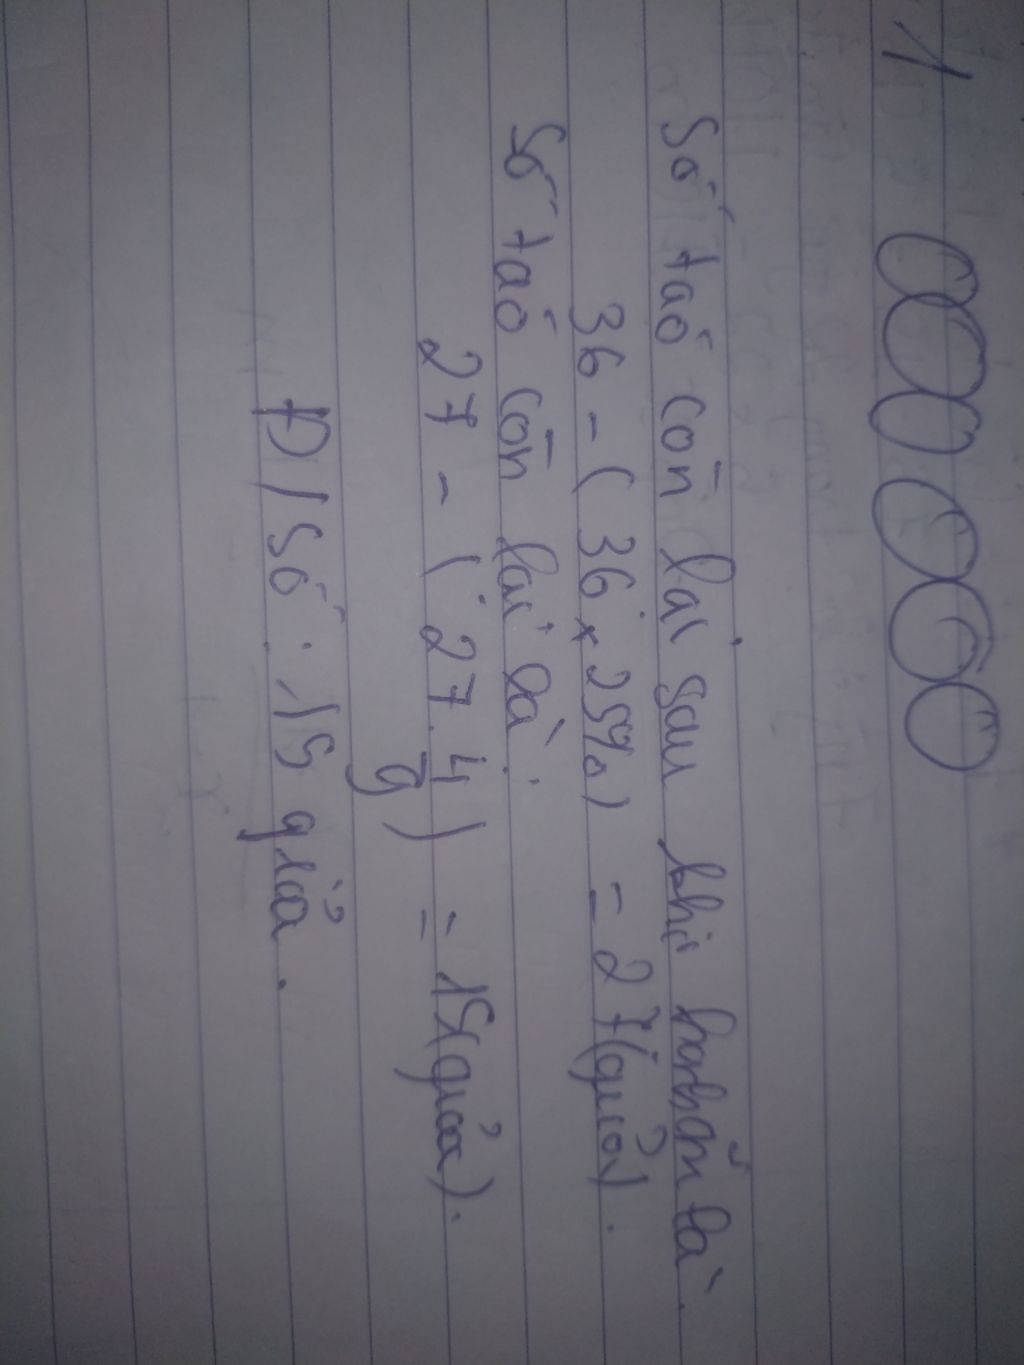 1
Số táo còn lại sau khi hạnh ăn là
36 - ( 36 x 25%) = 27 (quả).
Số táo còn lại là:
27 - ( 27. 4/9 ) = 15 (quả).
Đ/Số : 15 quả.